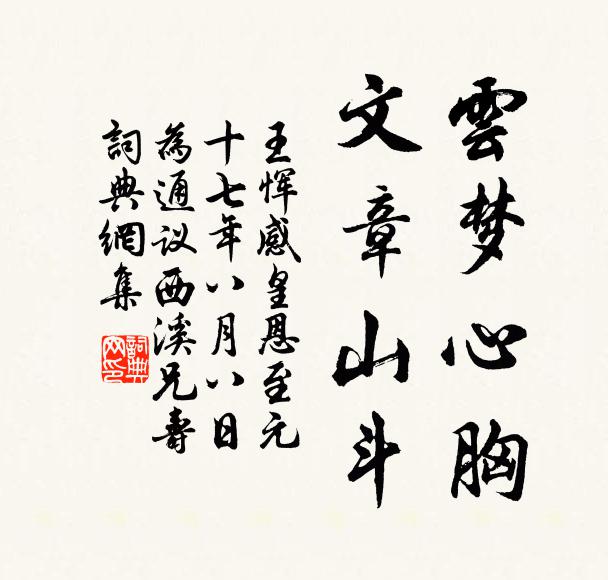 雲梦心胸
文章山斗
王恽感皇恩至元
十七年八月八日
為通议西溪兄壽
詞典網集
詞典
网印